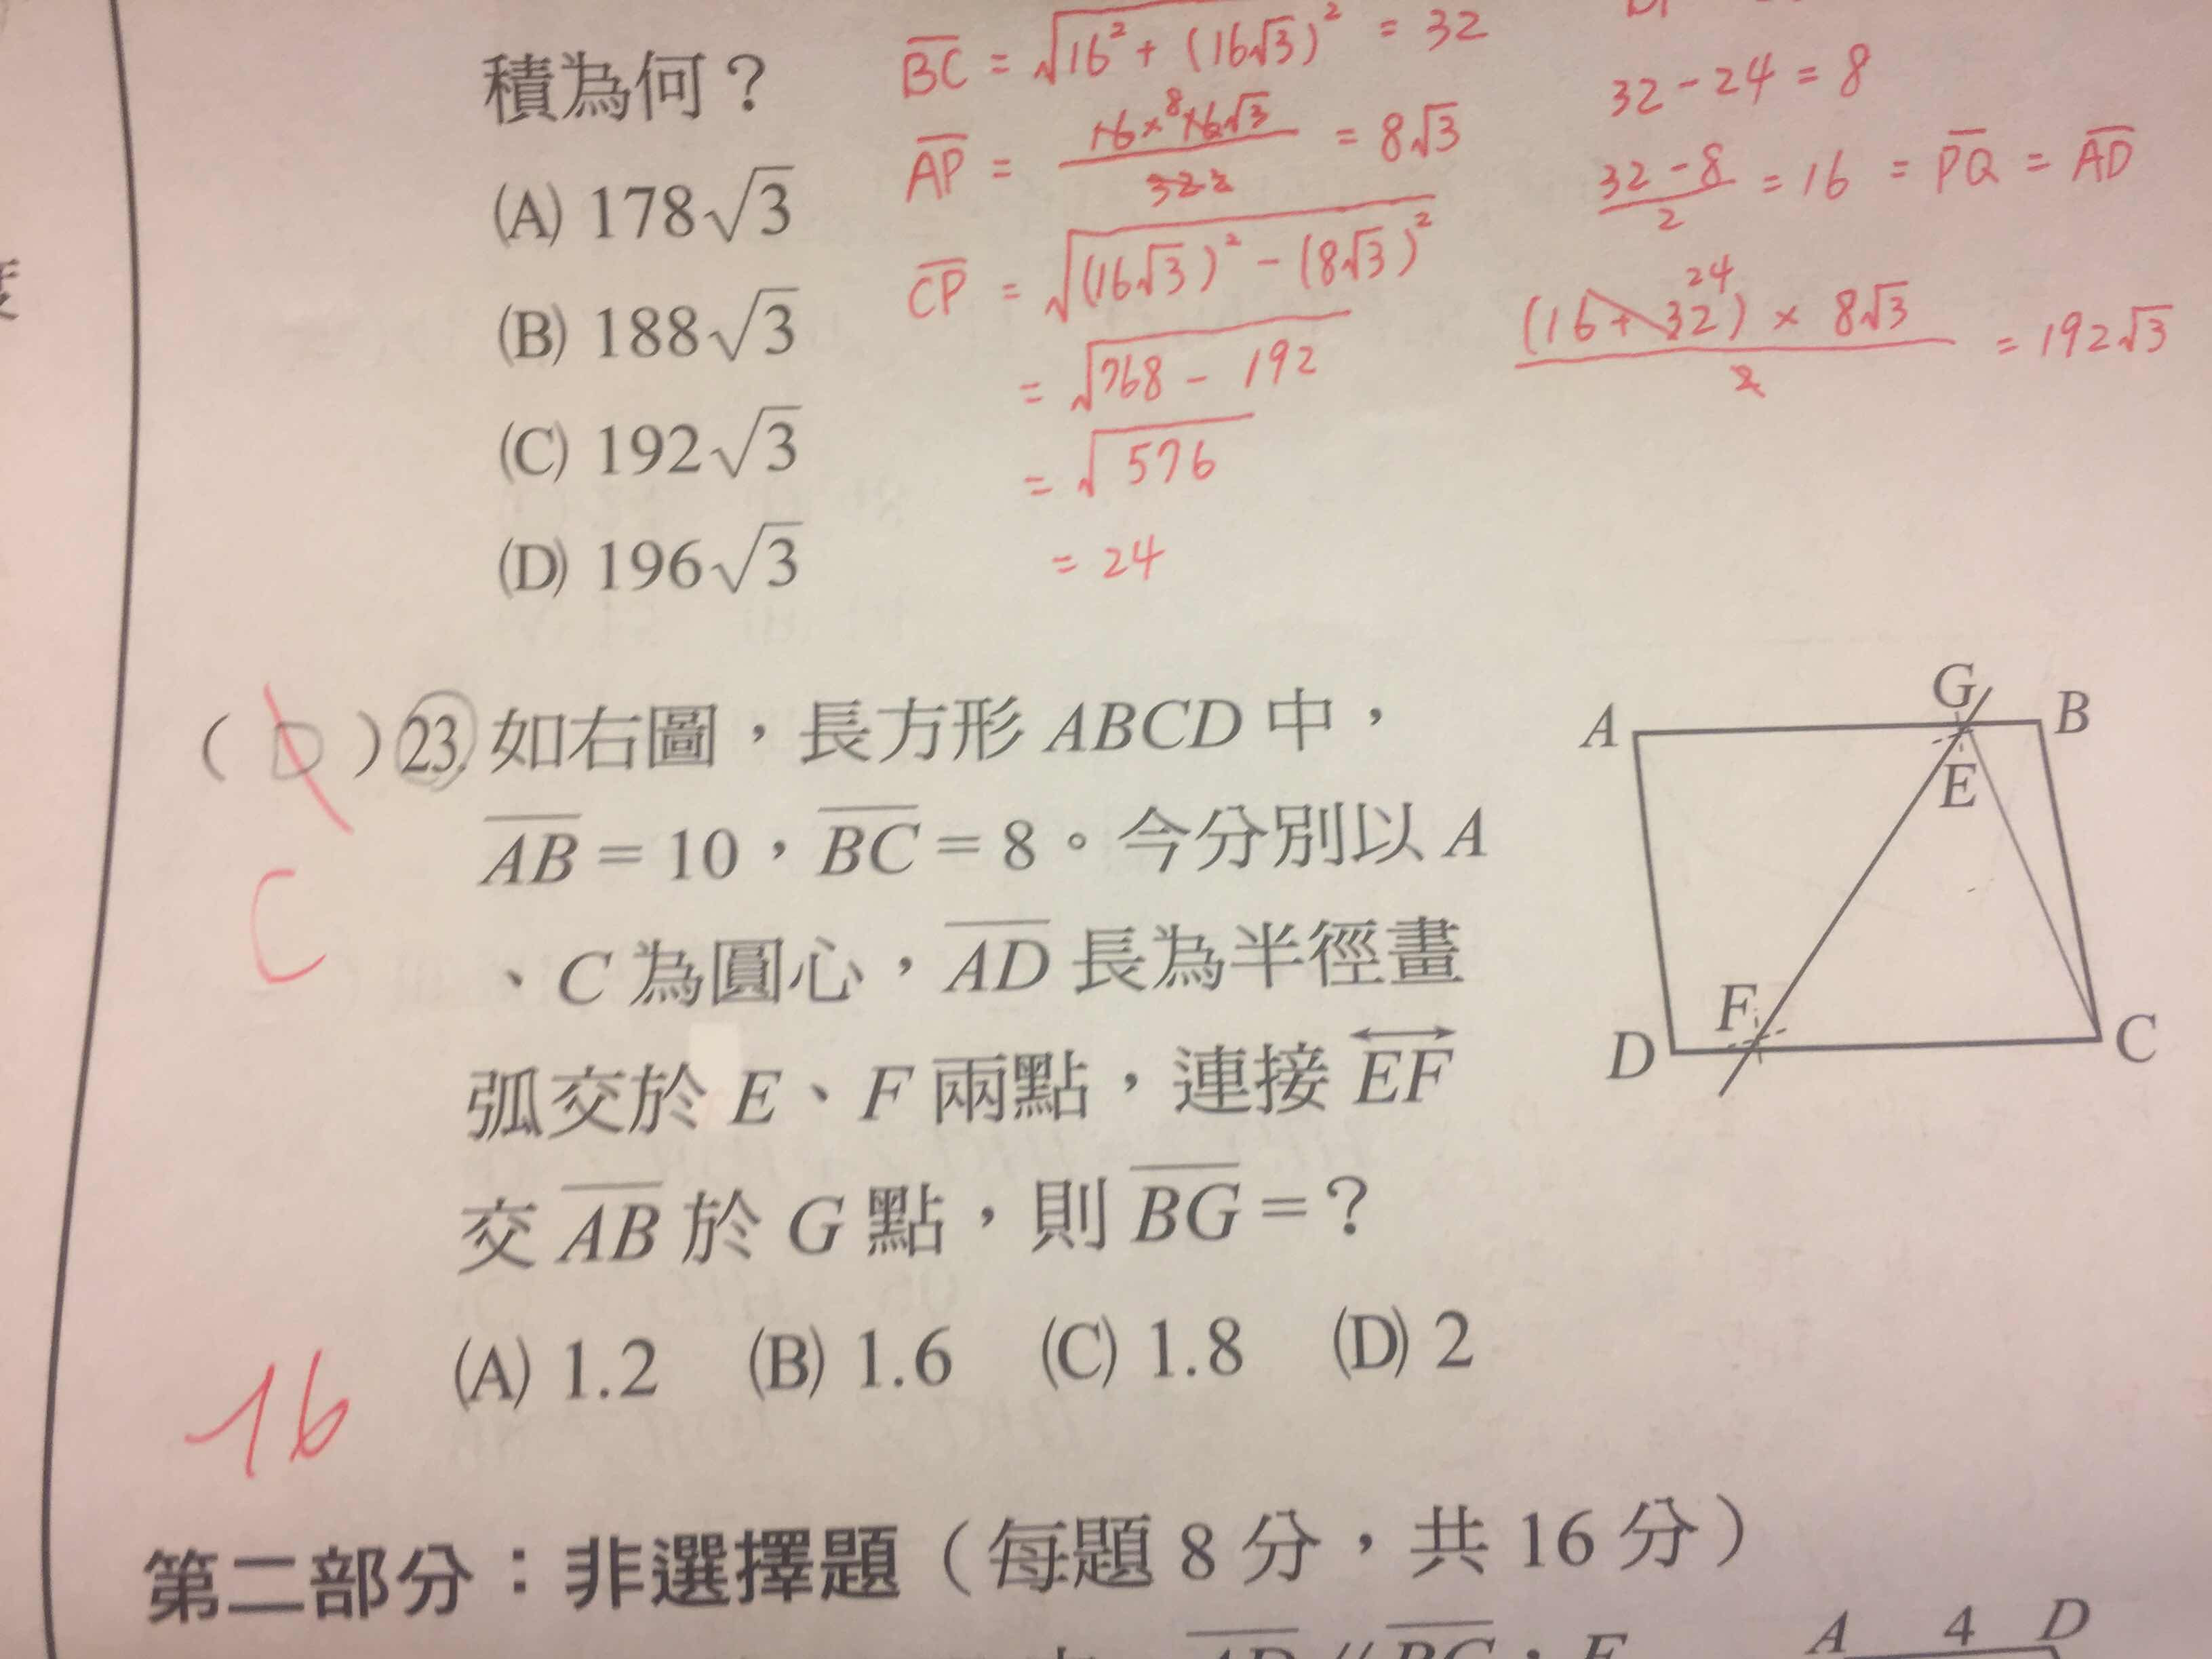 積為何？
(A) 178√3
(B) 188√3
(C) 192√3
(D) 196√3
BC = √(16² + (16√3)²) = 32
AP = 16×16√3 / 32 = 8√3
8
2
CP = √((16√3)² - (8√3)²)
= √(768 - 192)
= √576
= 24
32 - 24 = 8
(32 - 8) / 2 = 16 = PQ = AD
24
(16 + 32) × 8√3 / 2 = 192√3
( D ) 23. 如右圖，長方形 ABCD 中，
C
AB = 10，BC = 8。今分別以 A
、C 為圓心，AD 長為半徑畫
弧交於 E、F 兩點，連接 EF
交 AB 於 G 點，則 BG = ？
(A) 1.2 (B) 1.6 (C) 1.8 (D) 2
A
G
B
E
F
D
C
-16
第二部分：非選擇題（每題 8 分，共 16 分）
AD // BC，E
A 4 D